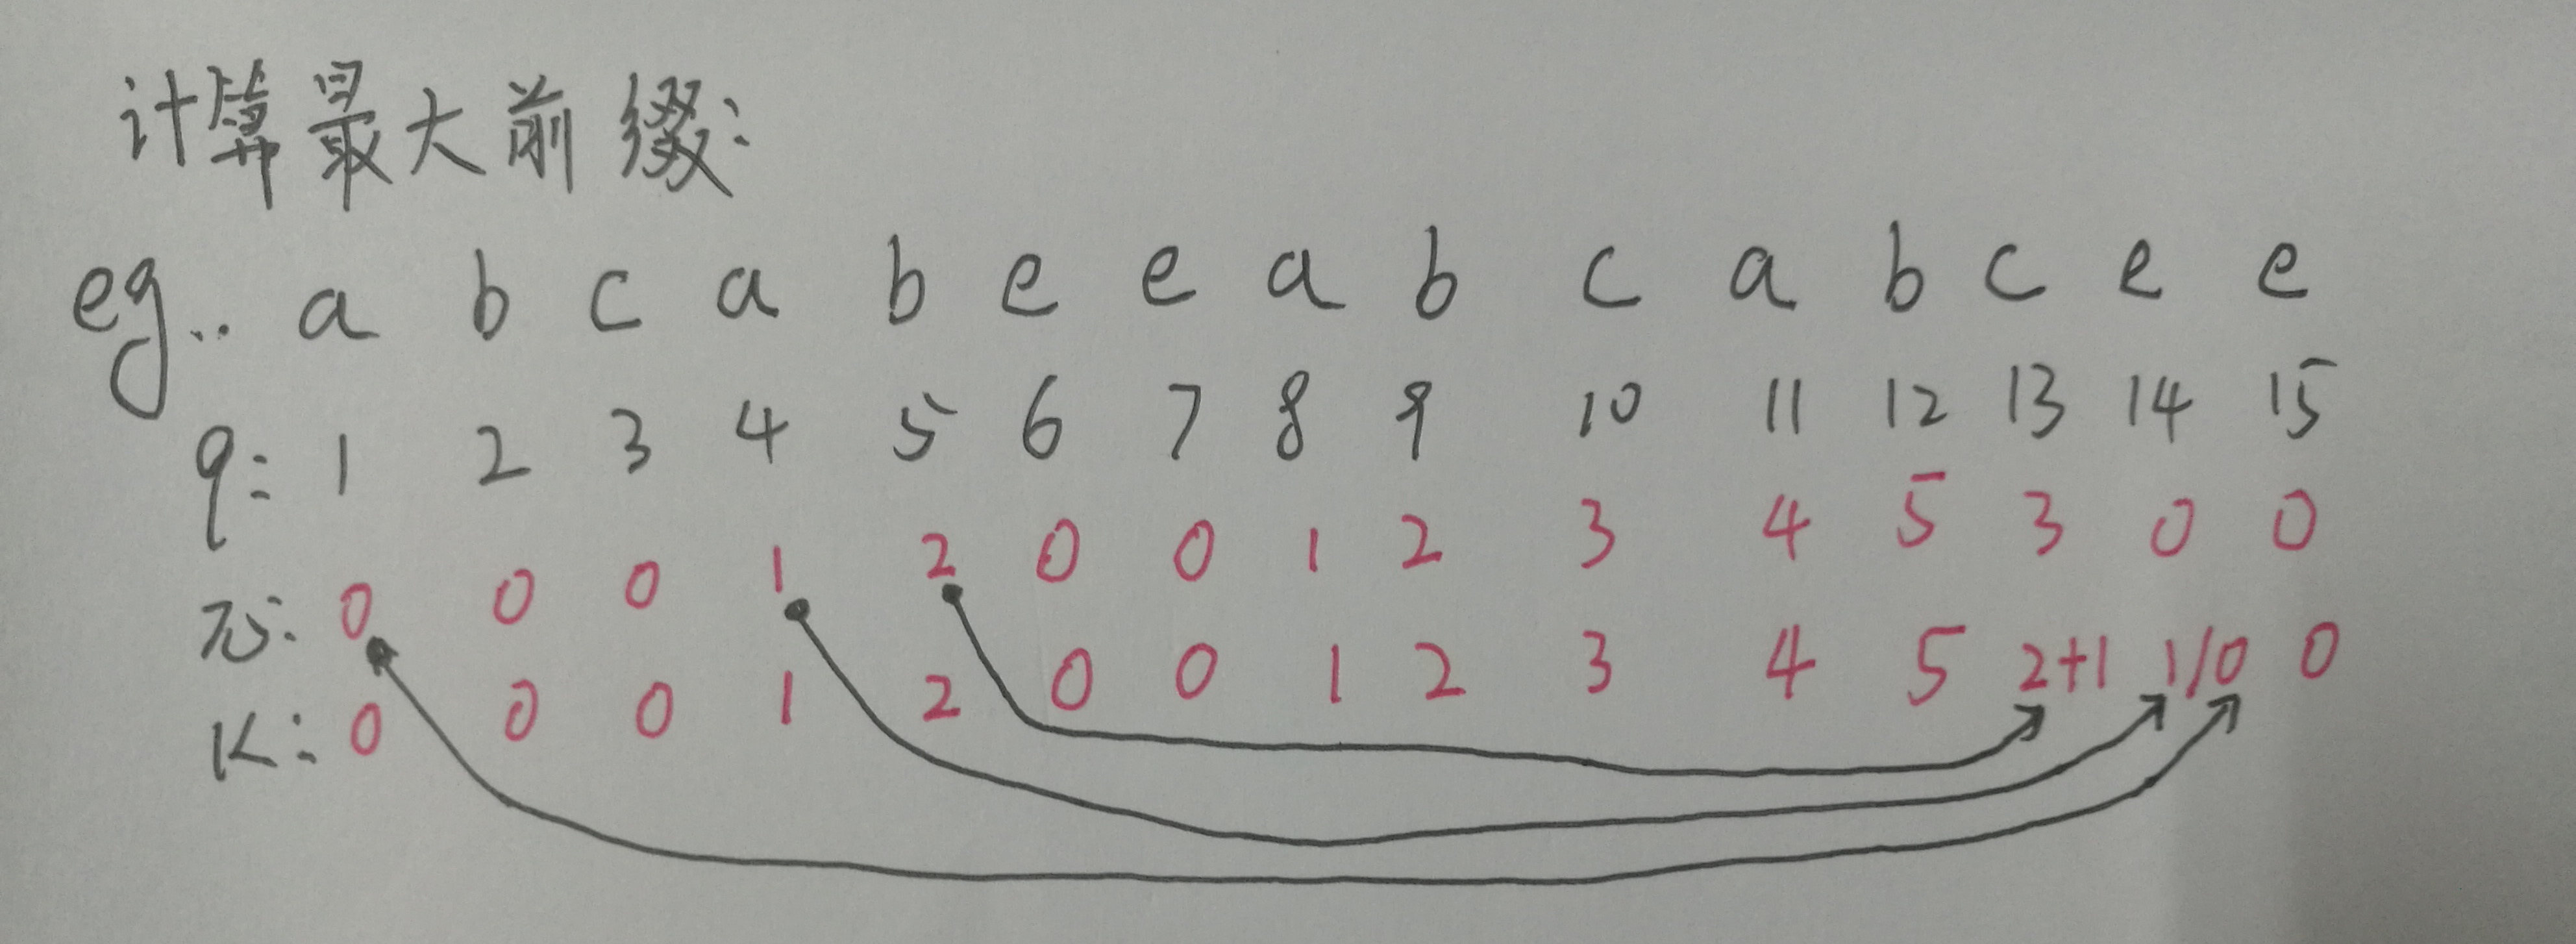 计算最大前缀:
eg.. a b c a b e e a b c a b c e e
q: 1 2 3 4 5 6 7 8 9 10 11 12 13 14 15
π: 0 0 0 1 2 0 0 1 2 3 4 5 3 0 0
K: 0 0 0 1 2 0 0 1 2 3 4 5 2+1 1/0 0